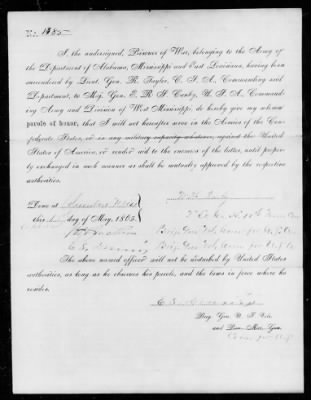 No. 1885
I, the undersigned, Prisoner of War, belonging to the Army of
the Department of Alabama, Mississippi and East Louisiana, having been
surrendered by Lieut. Gen. R. Taylor, C. S. A., Commanding said
Department, to Maj. Gen. E. R. S. Canby, U. S. A., Command-
ing Army and Division of West Mississippi, do hereby give my solemn
parole of honor, that I will not hereafter serve in the Armies of the Con-
federate States, or in any military capacity whatever, against the United
States of America, or render aid to the enemies of the latter, until prop-
erly exchanged in such manner as shall be mutually approved by the respective
authorities.
Done at Columbus Miss
this day of May, 1865.
Brig. Gen. Vols. Com for U.S.
Brig. Gen. Vols. Com for U.S.
The above named officer will not be disturbed by United States
authorities, as long as he observes his parole, and the laws in force where he
resides.
Brig. Gen. U. S. Vols.
and Pro. Mar. Gen.
Com for U.S.